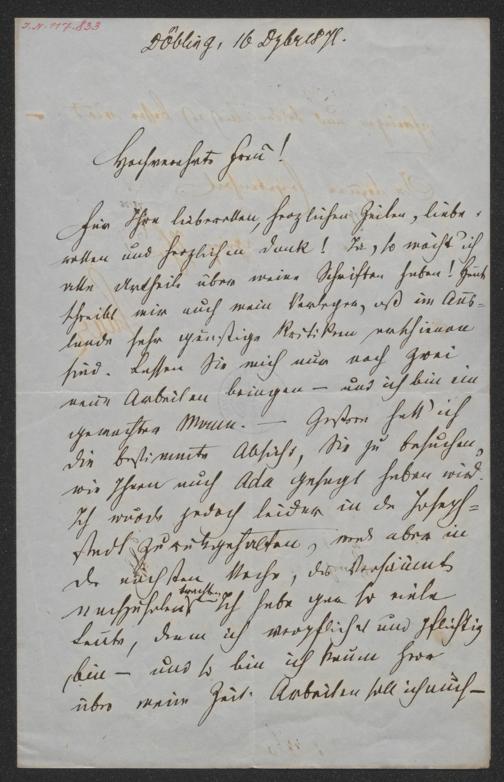 I.N. 117.833
Döbling, 16 Dzbr 187.
Hochverehrte Frau!
Für Ihre liebevollen, herzlichen Zeilen, liebe-
vollen und herzlichen Dank! Ja, so möcht' ich
alle Urtheile über meine Schriften haben! Heut
schreibt mir auch mein Verleger, daß im Aus-
lande sehr günstige Kritiken erschienen
sind. Lassen Sie mich nur noch zwei
neue Arbeiten bringen – und ich bin ein
gemachter Mann. – Gestern hatt' ich
die bestimmte Absicht, Sie zu besuchen,
wie Ihnen auch Ada gesagt haben wird.
Ich wurde jedoch leider in der Joseph-
stadt zurückgehalten, werde aber in
der nächsten Woche, das Versäumte
nachzuholen trachten. Ich habe gar so viele
Leute, denen ich verpflichtet und pflichtig
bin – und so bin ich kaum Herr
über meine Zeit. Arbeiten soll ich auch –